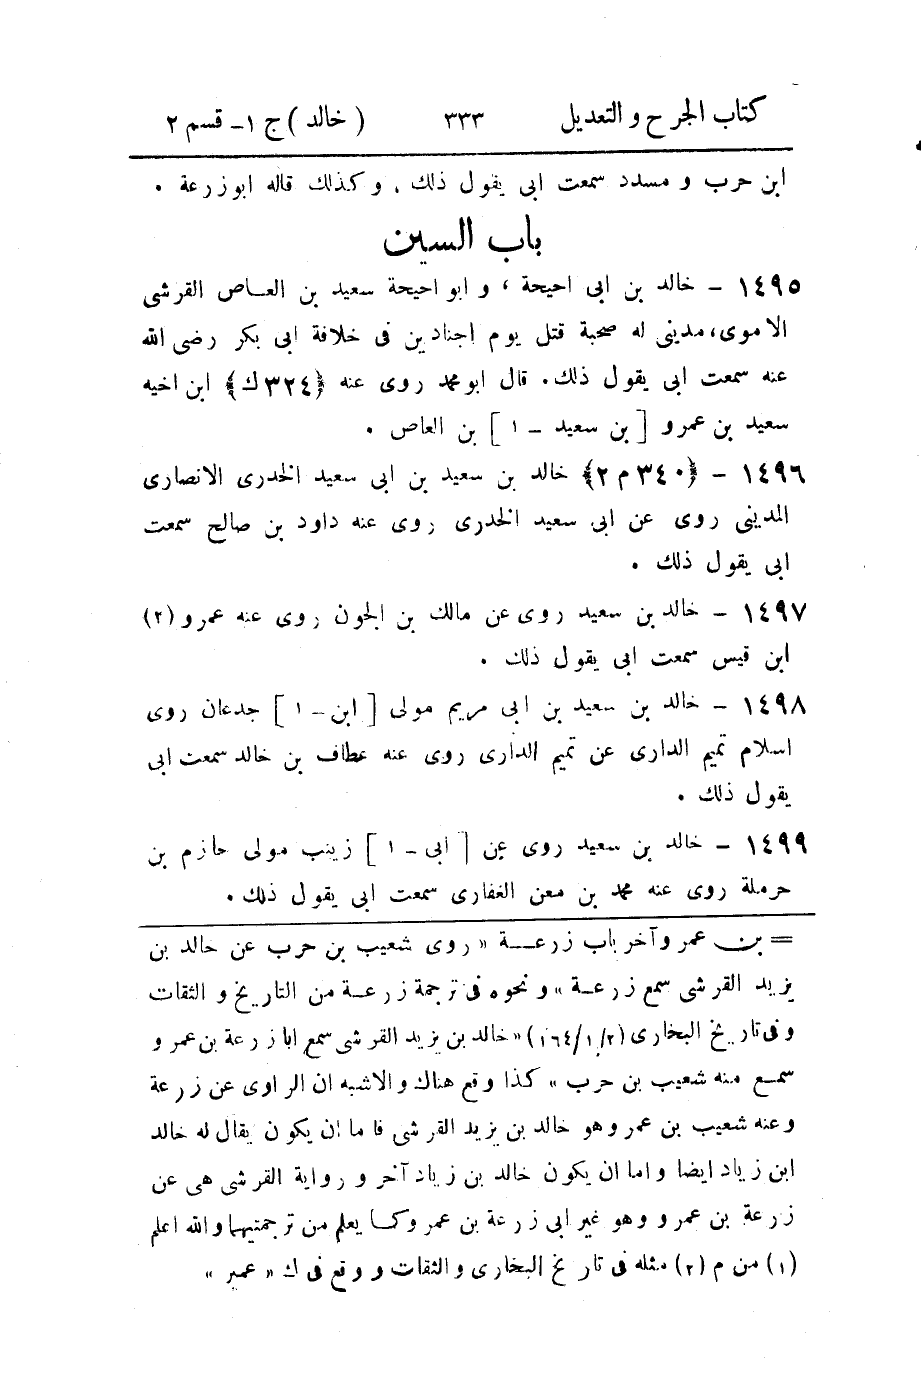 كتاب الجرح والتعديل ٣٣٣ (خالد) ج ١ - قسم ٢
ابن حرب و مسدد سمعت ابى يقول ذلك ، وكذلك قاله ابو زرعة .
باب السين
١٤٩٥ - خالد بن ابى احيحة ، و ابو احيحة سعيد بن العاص القرشى
الاموى، مدينى له صحبة قتل يوم اجنادين فى خلافة ابى بكر رضى الله
عنه سمعت ابى يقول ذلك. قال ابو محمد روى عنه ﴿٣٢٤ك﴾ ابن اخيه
سعيد بن عمرو [ بن سعيد - ١ ] بن العاص .
١٤٩٦ - ﴿٣٤٠ م ٢﴾ خالد بن سعيد بن ابى سعيد الخدرى الانصارى
المدينى روى عن ابى سعيد الخدرى روى عنه داود بن صالح سمعت
ابى يقول ذلك .
١٤٩٧ - خالد بن سعيد روى عن مالك بن الجون روى عنه عمرو (٢)
ابن قيس سمعت ابى يقول ذلك .
١٤٩٨ - خالد بن سعيد بن ابى مريم مولى [ ابن - ١ ] جدعان روى
اسلام تميم الدارى عن تميم الدارى روى عنه عطاف بن خالد سمعت ابى
يقول ذلك .
١٤٩٩ - خالد بن سعيد روى عن [ ابى - ١ ] زينب مولى حازم بن
حرملة روى عنه محمد بن معن الغفارى سمعت ابى يقول ذلك .
= بن عمر وآخر باب زرعة « روى شعيب بن حرب عن خالد بن
يزيد القرشى سمع زرعة » ونحوه فى ترجمة زرعة من التاريخ و الثقات
وفى تاريخ البخارى (١٦٤/١/٢) « خالد بن يزيد القرشى سمع ابا زرعة بن عمرو
سمع منه شعيب بن حرب » كذا وقع هناك والاشبه ان الراوى عن زرعة
وعنه شعيب بن عمرو هو خالد بن يزيد القرشى فاما ان يكون يقال له خالد
ابن زياد ايضا واما ان يكون خالد بن زياد آخر و رواية القرشى هى عن
زرعة بن عمرو وهو غير ابى زرعة بن عمرو كما يعلم من ترجمتيهما والله اعلم
(١) من م (٢) مثله فى تاريخ البخارى والثقات و وقع فى ك « عمير »